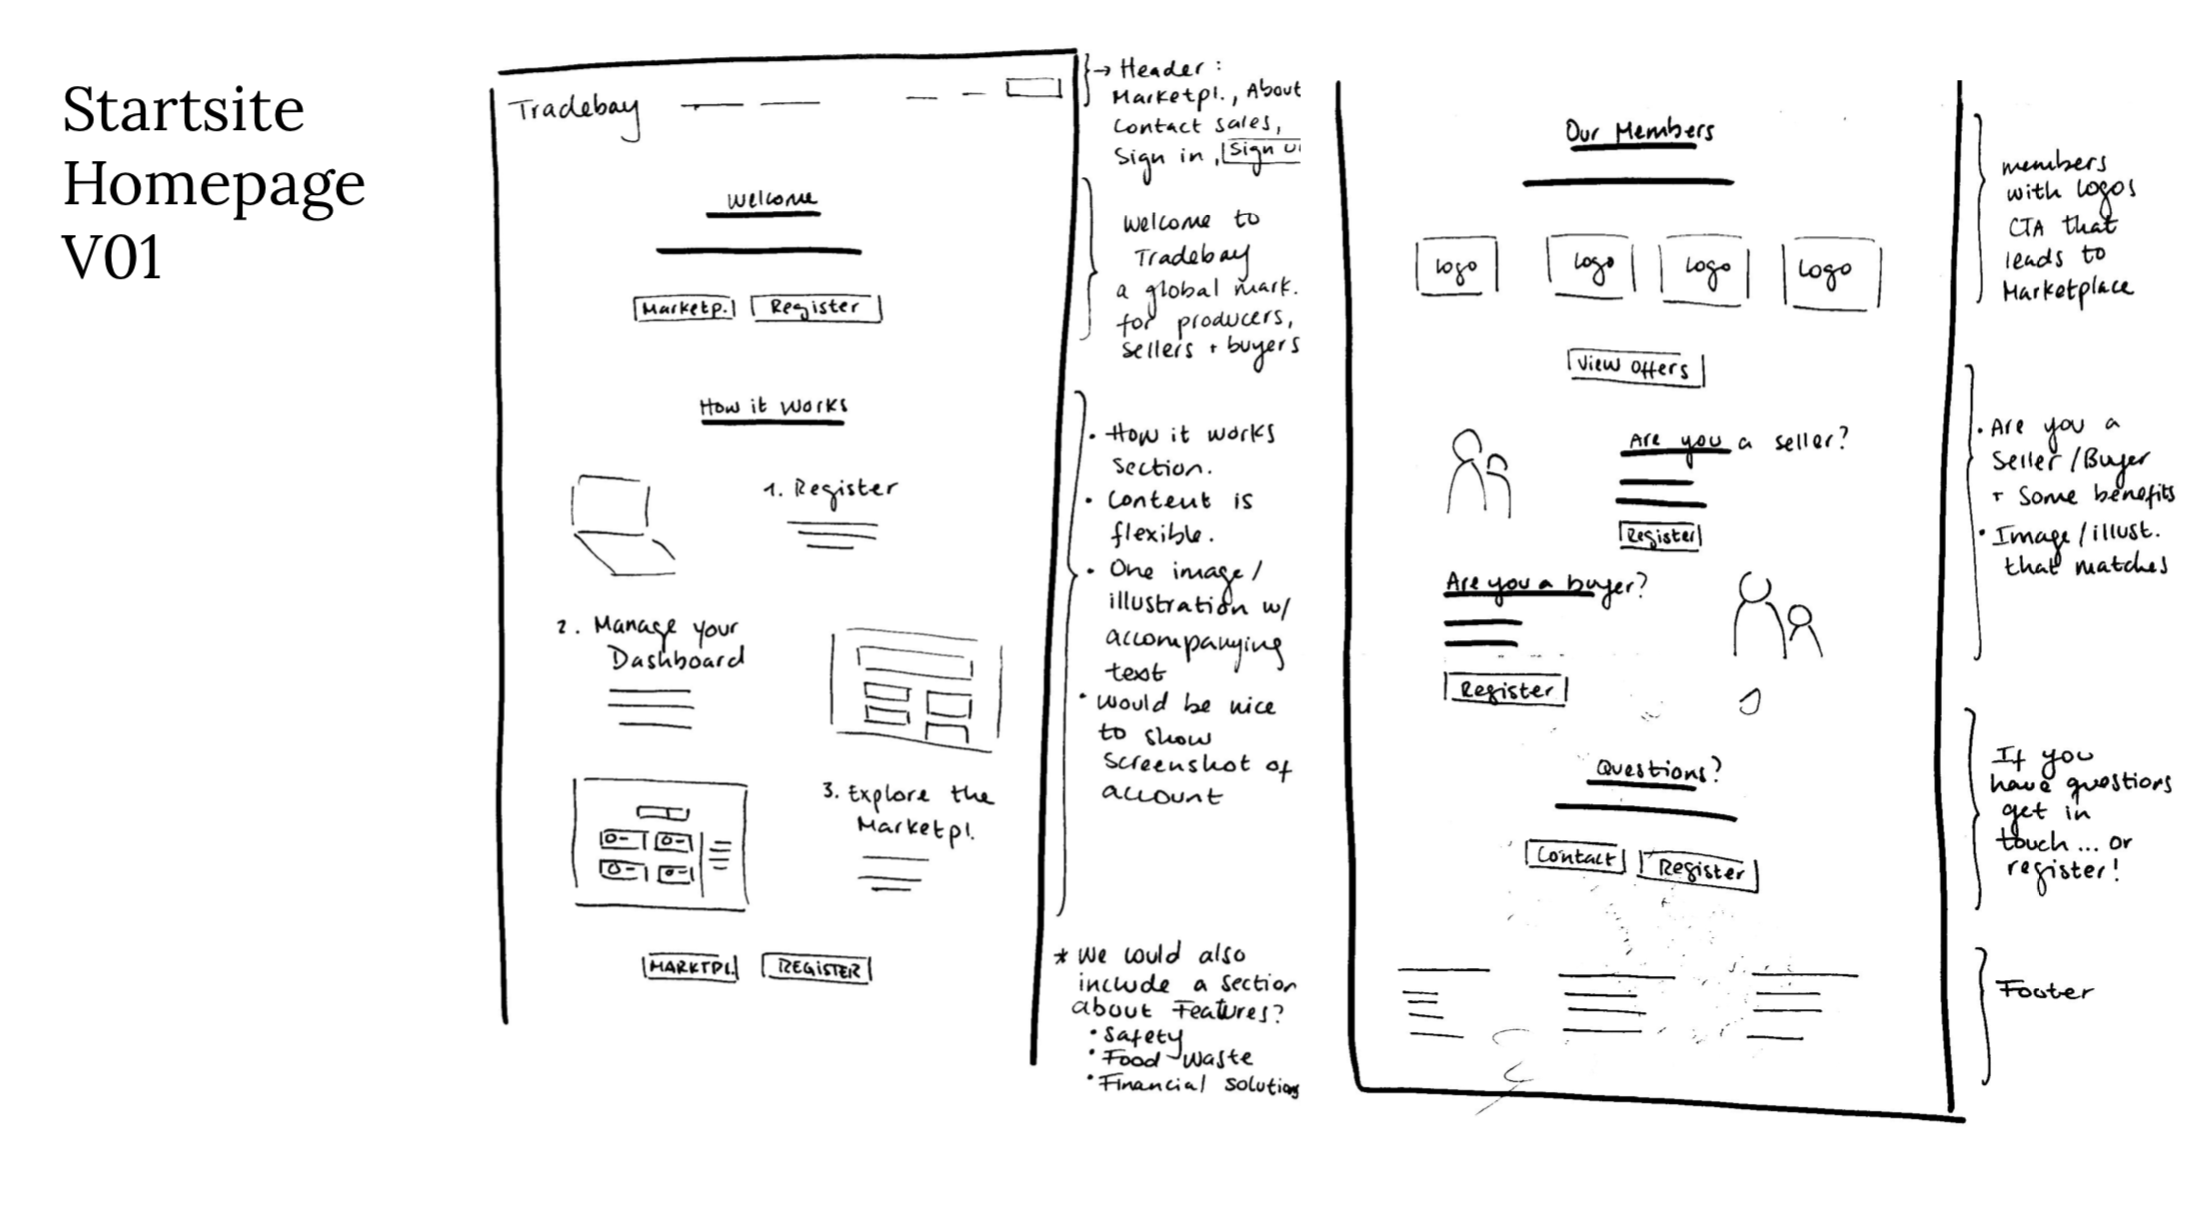 Startsite
Homepage
V01
Tradebay
Welcome
Marketp.
Register
How it works
1. Register
2. Manage your
Dashboard
3. Explore the
Marketpl.
MARKTPL.
REGISTER
→ Header :
Marketpl., About
Contact sales,
Sign in, Sign u
Welcome to
Tradebay
a global mark.
for producers,
sellers + buyers
• How it works
section.
• Content is
flexible.
• One image/
illustration w/
accompanying
text
• would be nice
to show
screenshot of
account
* We could also
include a section
about Features?
• Safety
• Food waste
• Financial solutions
Our Members
Logo
Logo
Logo
Logo
View offers
Are you a seller?
Register
Are you a buyer?
Register
Questions?
Contact
Register
members
with logos
CTA that
leads to
Marketplace
• Are you a
Seller/Buyer
+ some benefits
• Image/illust.
that matches
If you
have questions
get in
touch... or
register!
Footer